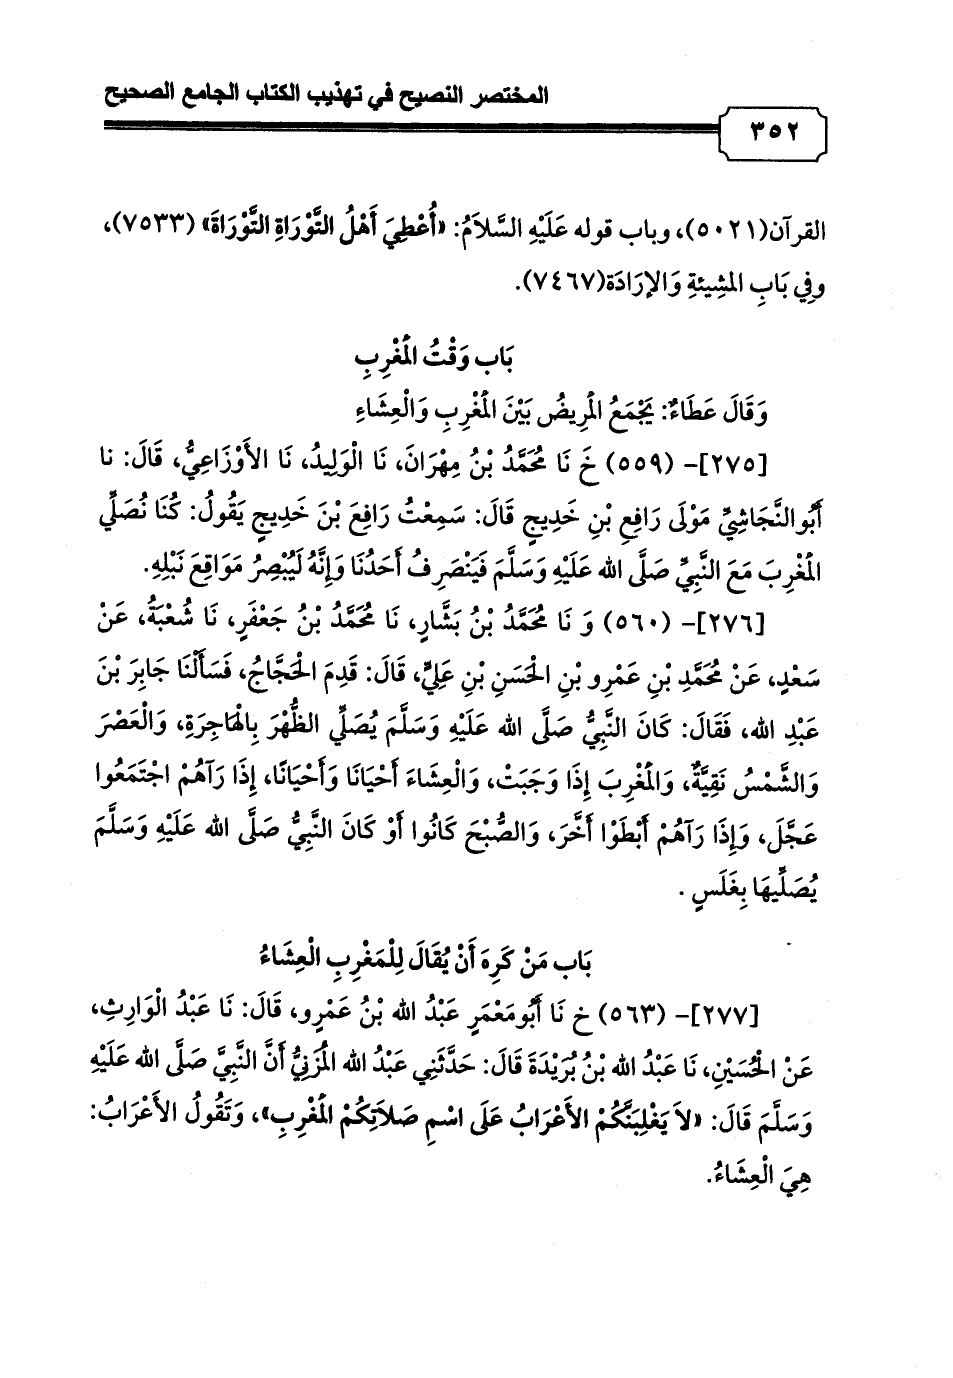 المختصر النصيح في تهذيب الكتاب الجامع الصحيح
٣٥٢
القرآن(٥٠٢١)، وباب قوله عَلَيْهِ السَّلَامُ: «أُعْطِيَ أَهْلُ التَّوْرَاةِ التَّوْرَاةَ» (٧٥٣٣)،
وفِي بَابِ المشِيئةِ وَالإرَادَة(٧٤٦٧).
بَاب وَقْتُ المَغْرِبِ
وَقَالَ عَطَاءٌ: يَجْمَعُ المَرِيضُ بَيْنَ المَغْرِبِ وَالْعِشَاءِ
[٢٧٥]- (٥٥٩) خ نَا مُحَمَّدُ بْنُ مِهْرَانَ، نَا الْوَلِيدُ، نَا الأَوْزَاعِيُّ، قَالَ: نا
أَبُوالنَّجَاشِيِّ مَوْلَى رَافِعِ بْنِ خَدِيجٍ قَالَ: سَمِعْتُ رَافِعَ بْنَ خَدِيجٍ يَقُولُ: كُنَا نُصَلِّي
المَغْرِبَ مَعَ النَّبِيِّ صَلَّى الله عَلَيْهِ وَسَلَّمَ فَيَنْصَرِفُ أَحَدُنَا وَإِنَّهُ لَيُبْصِرُ مَوَاقِعَ نَبْلِهِ.
[٢٧٦]- (٥٦٠) وَ نَا مُحَمَّدُ بْنُ بَشَّارٍ، نَا مُحَمَّدُ بْنُ جَعْفَرٍ، نَا شُعْبَةُ، عَنْ
سَعْدٍ، عَنْ مُحَمَّدِ بْنِ عَمْرِو بْنِ الحَسَنِ بْنِ عَلِيٍّ، قَالَ: قَدِمَ الحَجَّاجُ، فَسَأَلْنَا جَابِرَ بْنَ
عَبْدِ الله، فَقَالَ: كَانَ النَّبِيُّ صَلَّى الله عَلَيْهِ وَسَلَّمَ يُصَلِّي الظُّهْرَ بِالْهَاجِرَةِ، وَالْعَصْرَ
وَالشَّمْسُ نَقِيَّةٌ، وَالمَغْرِبَ إِذَا وَجَبَتْ، وَالْعِشَاءَ أَحْيَانَا وَأَحْيَانًا، إِذَا رَآهُمْ اجْتَمَعُوا
عَجَّلَ، وَإِذَا رَآهُمْ أَبْطَوْا أَخَّرَ، وَالصُّبْحَ كَانُوا أَوْ كَانَ النَّبِيُّ صَلَّى الله عَلَيْهِ وَسَلَّمَ
يُصَلِّيهَا بِغَلَسٍ .
بَاب مَنْ كَرِهَ أَنْ يُقَالَ لِلْمَغْرِبِ الْعِشَاءُ
[٢٧٧]- (٥٦٣) خ نَا أَبُومَعْمَرٍ عَبْدُ الله بْنُ عَمْرٍو، قَالَ: نَا عَبْدُ الْوَارِثِ،
عَنْ الحُسَيْنِ، نَا عَبْدُ الله بْنُ بُرَيْدَةَ قَالَ: حَدَّثَنِي عَبْدُ الله المُزَنِيُّ أَنَّ النَّبِيَّ صَلَّى الله عَلَيْهِ
وَسَلَّمَ قَالَ: «لاَ يَغْلِبَنَّكُمْ الأَعْرَابُ عَلَى اسْمِ صَلاَتِكُمْ المَغْرِبِ»، وَتَقُولُ الأَعْرَابُ:
هِيَ الْعِشَاءُ.